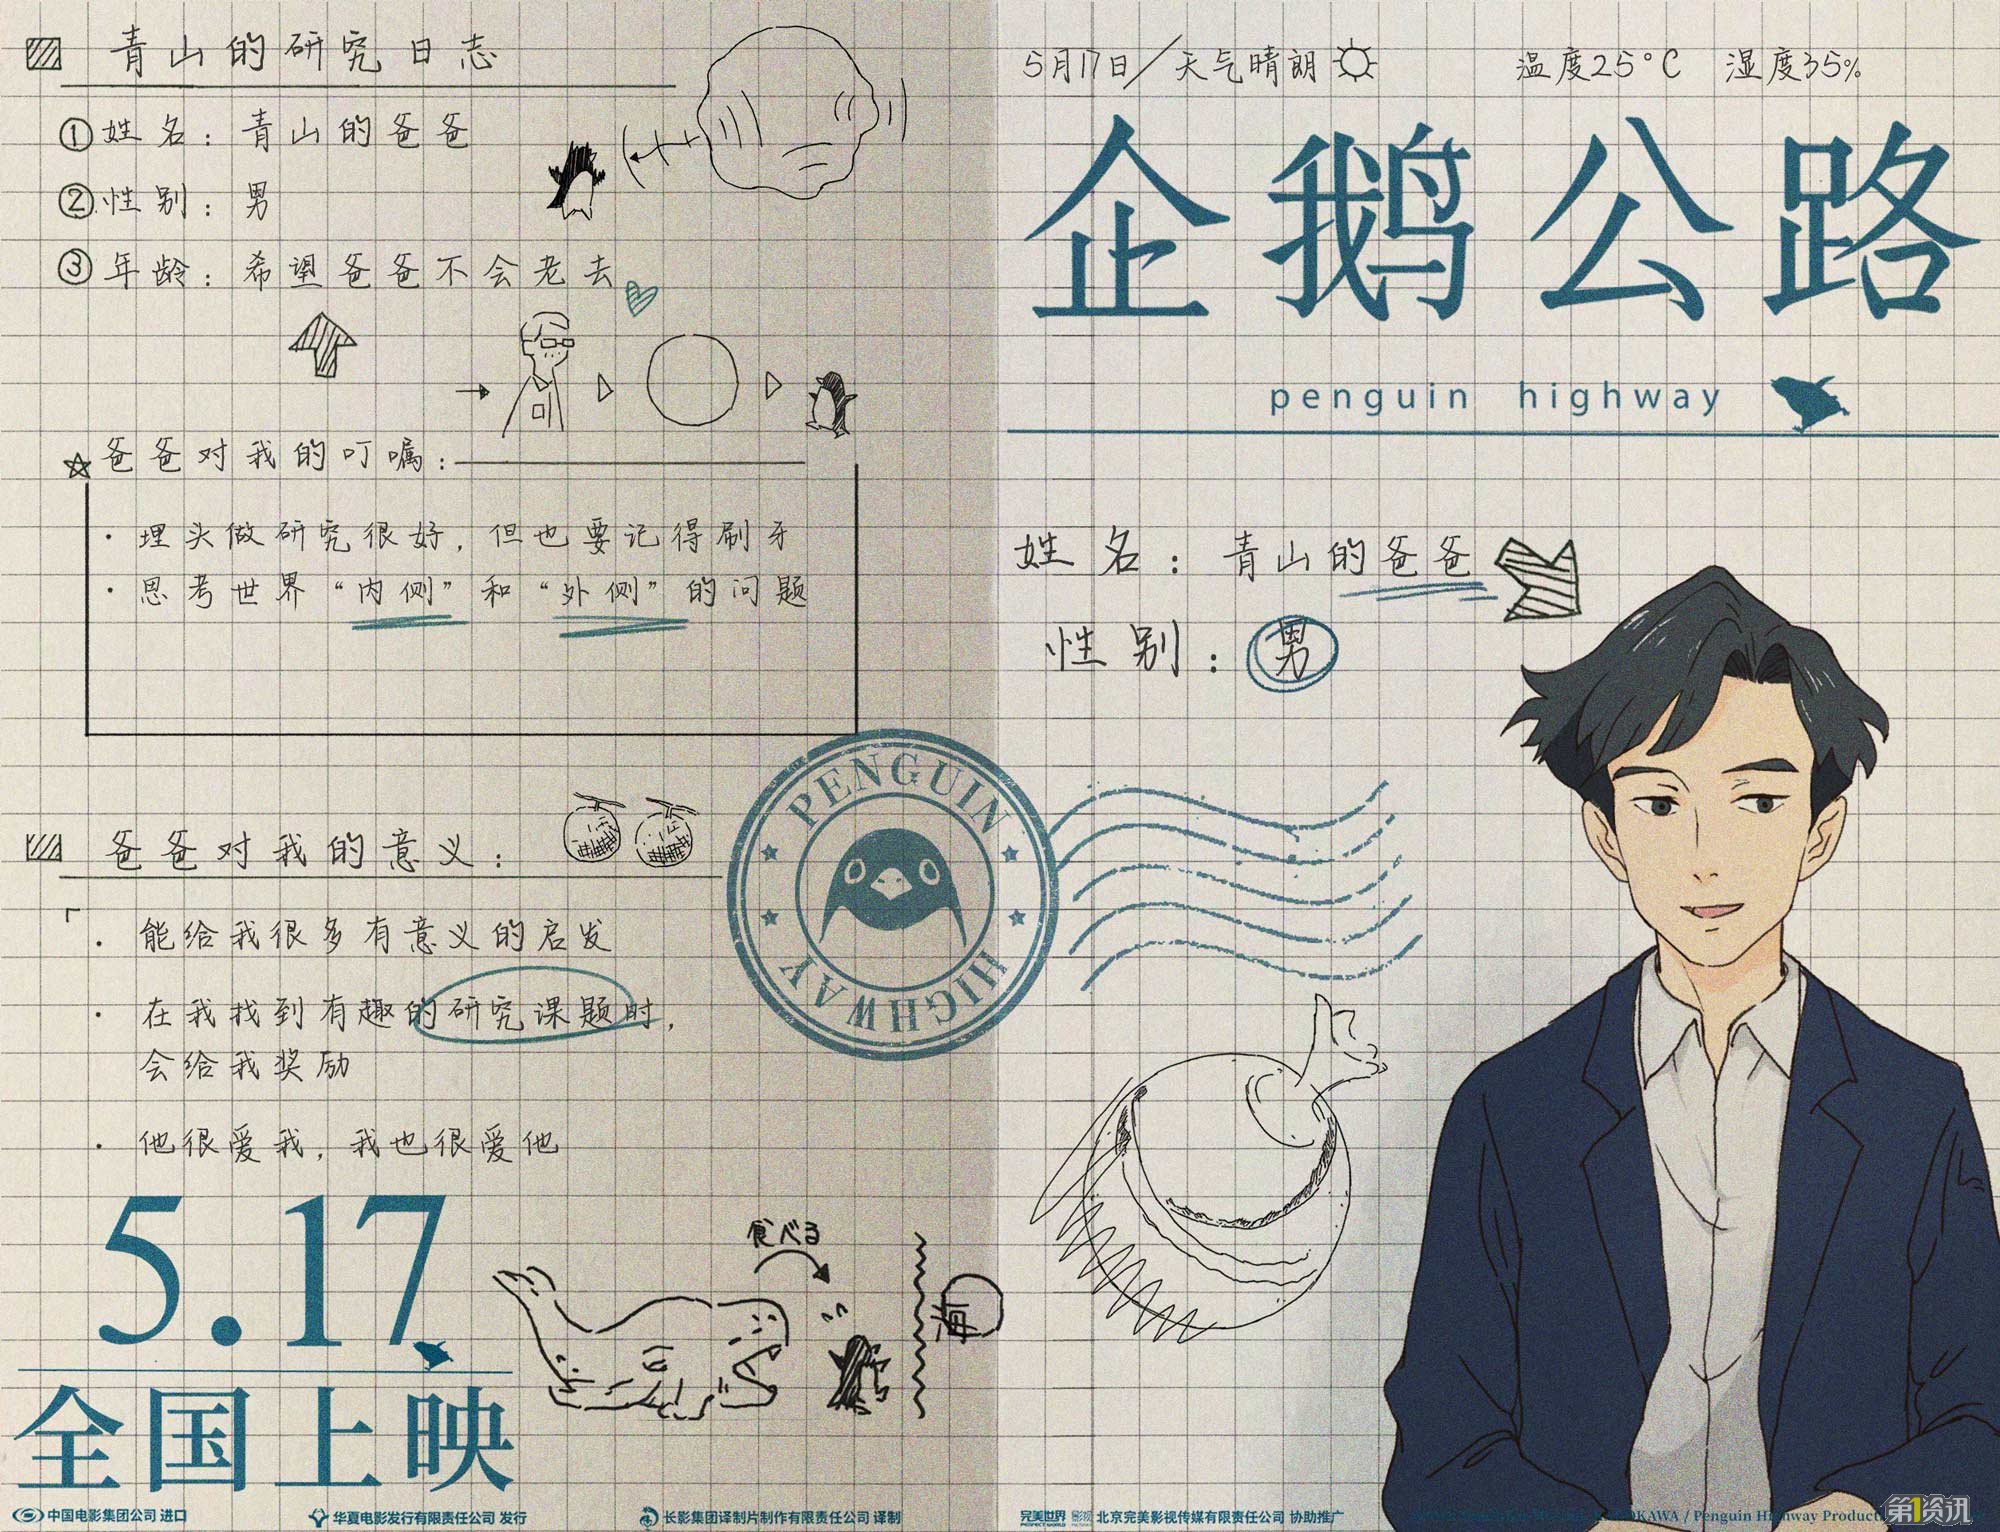 青山的研究日志
①姓名：青山的爸爸
②性别：男
③年龄：希望爸爸不会老去
爸爸对我的叮嘱：
·埋头做研究很好，但也要记得刷牙
·思考世界“内侧”和“外侧”的问题
爸爸对我的意义：
·能给我很多有意义的启发
·在我找到有趣的研究课题时，
会给我奖励
·他很爱我，我也很爱他
5.17
全国上映
食べる
海
PENGUIN HIGHWAY
5月17日/天气晴朗
温度25°C 湿度35%
企鹅公路
penguin highway
姓名：青山的爸爸
性别：男
中国电影集团公司 进口
华夏电影发行有限责任公司 发行
长影集团译制片制作有限责任公司 译制
完美世界 影视
PERFECT WORLD
北京完美影视传媒有限责任公司 协助推广
KADOKAWA / Penguin Highway Produc
第1资讯